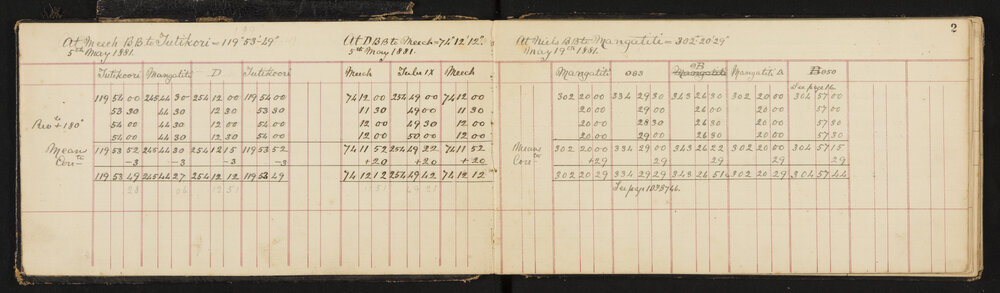 2
At Meech BB to Tutikori = 119° 53' 49"
5th May 1881.
Tutikoori Mangatiti D Tutikoori
119 54 00 245 44 30 254 12 00 119 54 00
53 30 44 30 12 30 53 30
Revo + 180° 54 00 44 30 12 00 54 00
54 00 44 30 12 30 54 00
Means 119 53 52 245 44 30 254 12 15 119 53 52
Corrn -3 -3 -3 -3
119 53 49 245 44 27 254 12 12 119 53 49
At D BB to Meech = 74° 12' 12"
5th May 1881.
Meech Tube IX Meech
74 12 00 254 49 00 74 12 00
11 30 49 00 11 30
12 00 49 30 12 00
12 00 50 00 12 00
74 11 52 254 49 22 74 11 52
+20 +20 +20
74 12 12 254 49 42 74 12 12
At Niels BB to Mangatiti = 302° 20' 29"
May 19th 1881.
Mangatiti OBS OB Mangatiti Mangatiti A B OBO
See page 16
302 20 00 334 29 30 343 26 30 302 20 00 304 57 00
20 00 29 00 26 30 20 00 57 00
20 00 28 30 26 30 20 00 57 30
20 00 29 00 26 30 20 00 57 30
Means 302 20 00 334 29 00 343 26 22 302 20 00 304 57 15
Corrn +29 29 29 29 29
302 20 29 334 29 29 343 26 51 302 20 29 304 57 44